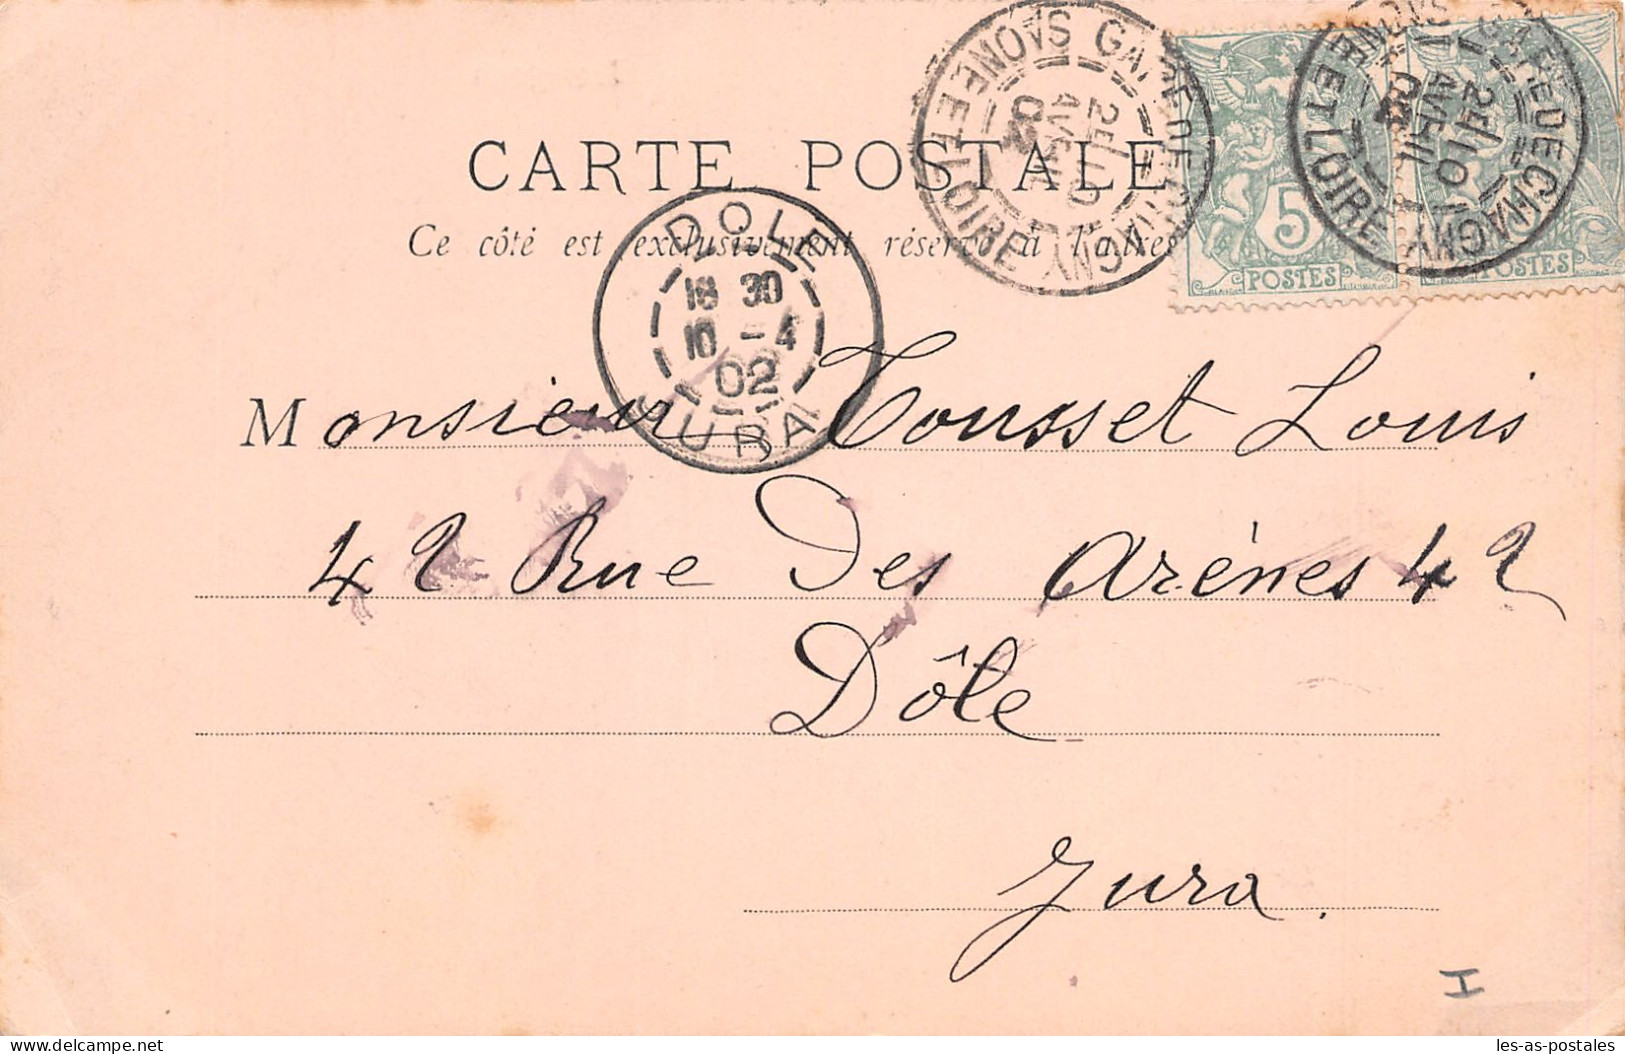 CARTE POSTALE
Ce côté est exclusivement réservé à l'adres
GARE DE CHAGNY
SAONE ET LOIRE
2E/10
AVRIL
02
GARE DE CHAGNY
SAONE ET LOIRE
2E/10
AVRIL
5
POSTES
POSTES
DOLE
18 30
10 - 4
02
JURA
Monsieur Tousset Louis
42 Rue Des Arènes 42
Dôle
Jura.
I
delcampe.net
les-as-postales